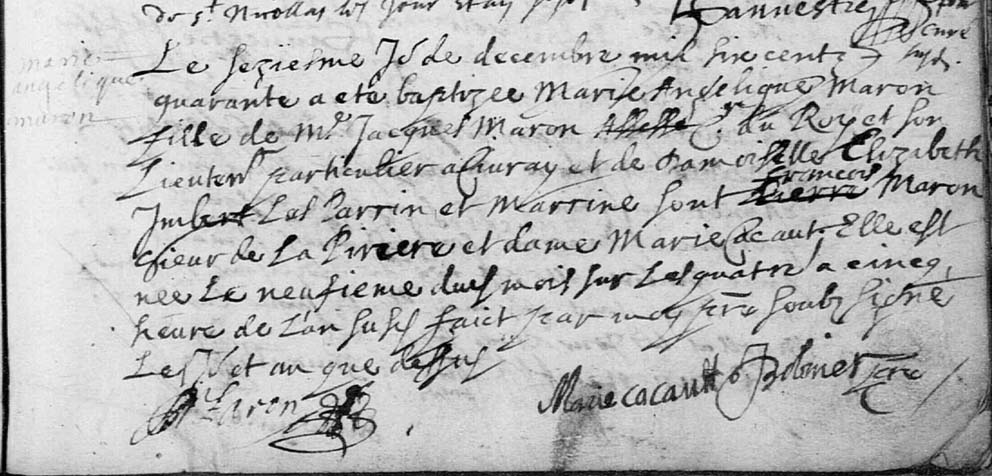 de st Nicollas les jour et an
curé
marie
angelique
maron
Le seziesme Jo de decembre mil six cents
quarante a eté baptizee Marie Angelique Maron
fille de Mr Jacques Maron du Roy et son
Lieuten particulier a et de damoiselle Elizabeth
francois
Imbert Les Parrin et Marrine sont pierre Maron
sieur de La Riviere et dame Marie Cacaut Elle est
nee Le neufieme dud mois sur Les quatre a cincq
heure de L'an susd faict par moy pre soubz signé
Les Jo et an que dessus
Maron
Marie cacault Robinet pre